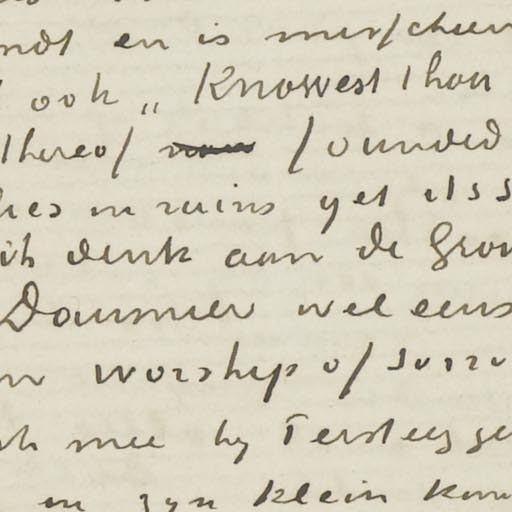 ndt en is misschien
ook „ Knowest thou
thereof founded
lies in ruins yet its s
ik denk aan de Gron
Daumier wel eens
worship of sorro
ik mee by Tersteeg ge
in zyn klein kam